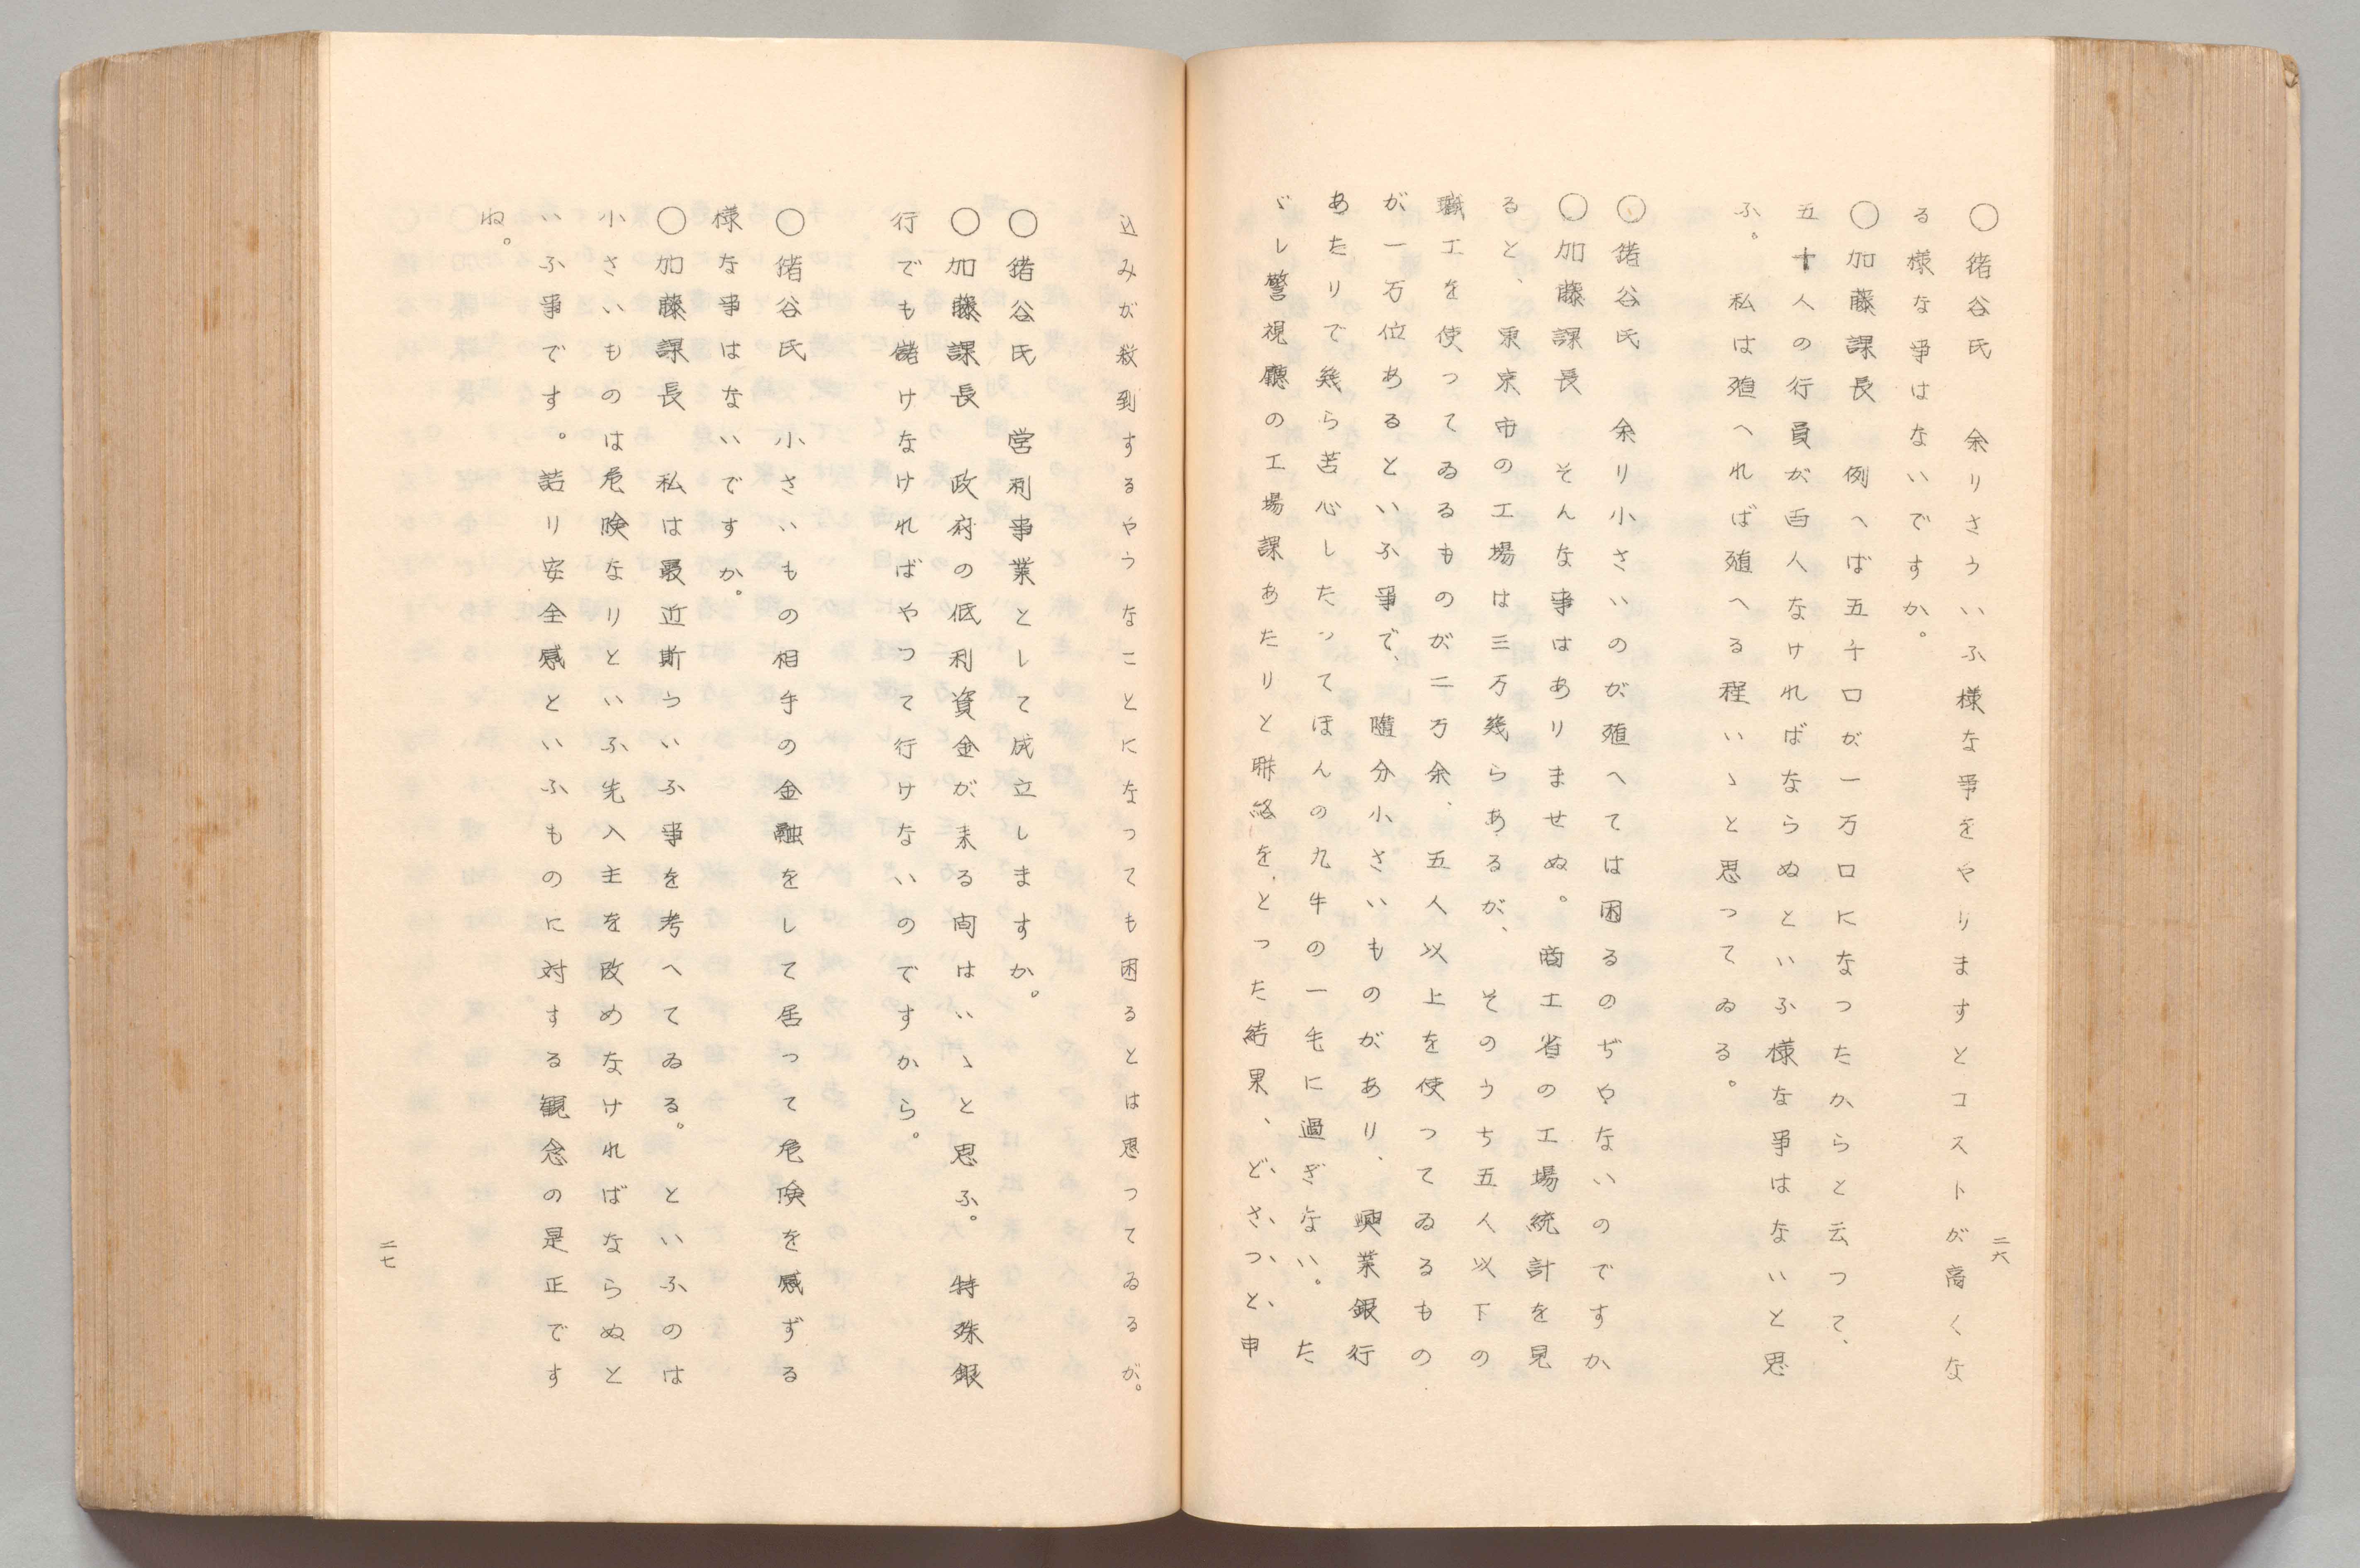 〇猪谷氏　余りさういふ様な事をやりますとコストが高くな
る様な事はないですか。
〇加藤課長　例へば五千口が一万口になつたからと云つて、
五十人の行員が百人なければならぬといふ様な事はないと思
ふ。私は殖へれば殖へる程いゝと思つてゐる。
〇猪谷氏　余り小さいのが殖へては困るのぢやないのですか
〇加藤課長　そんな事はありませぬ。商工省の工場統計を見
ると、東京市の工場は三万幾らあるが、そのうち五人以下の
職工を使つてゐるものが二万余、五人以上を使つてゐるもの
が一万位あるといふ事で、随分小さいものがあり、興業銀行
あたりで幾ら苦心したつてほんの九牛の一毛に過ぎない。た
ゞし警視廳の工場課あたりと聯絡をとつた結果、どさつと申
二六
込みが殺到するやうなことになつても困るとは思つてゐるが。
〇猪谷氏　営利事業として成立しますか。
〇加藤課長　政府の低利資金が来る間はいゝと思ふ。特殊銀
行でも儲けなければやつて行けないのですから。
〇猪谷氏　小さいもの相手の金融をして居つて危険を感ずる
様な事はないですか。
〇加藤課長　私は最近斯ういふ事を考へてゐる。といふのは
小さいものは危険なりといふ先入主を改めなければならぬと
いふ事です。詰り安全感といふものに対する観念の是正です
ね。
二七